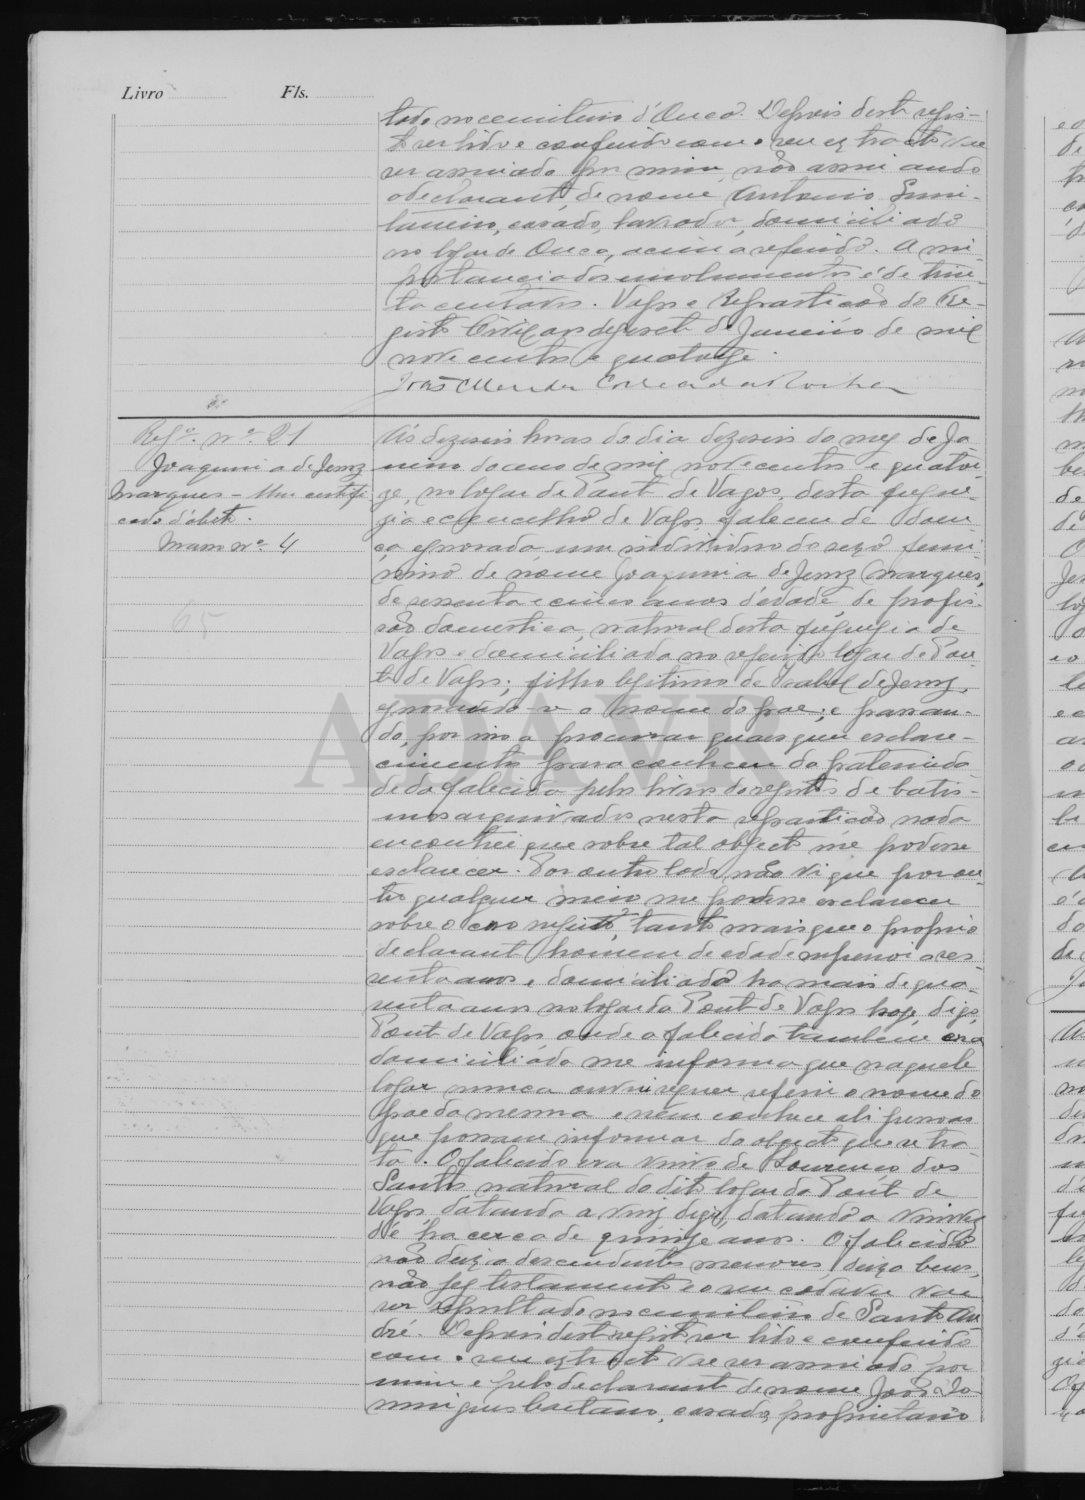 Livro Fls.
tado no cemiterio d'Ouca. Depois deste regis-
to ser lido e conferido com o seu extracto vae
ser assinado por mim, não assinando
o declarante, de nome, Antonio
casado, lavrador, domiciliado
no logar de Ouca, acima referido. A im-
portancia dos emolumentos é de trin-
ta centavos. Vagos e Repartição do Re-
gisto Civil aos dezasete de Janeiro de mil
nove centos e quatorze.
João Mendes Correia da Rocha
Regº. nº. 21
Joaquina de Jesus
Marques - Um certifi
cado d'obito.
Maço nº. 4
65
Ás dezeseis horas do dia dezeseis do mez de Ja
neiro do ano de mil nove centos e quator
ze, no logar de Pont de Vagos, desta fregue-
zia e concelho de Vagos, faleceu de doen
ça ignorada um individuo do sexo femi-
nino de nome Joaquina de Jesus Marques,
de sessenta e cinco anos d'edade, de profis-
são domestica, natural desta freguezia de
Vagos e domiciliada no referido logar de Pon
te de Vagos; filho legitimo de Izabel de Jesus,
ignorando-se o nome do pae; e passan-
do, por isso a procurar quaesquer esclare-
cimentos para conhecer da paternida
de da falecida pelos livros do registos de batis-
mos arquivados nesta repartição nada
encontrei que sobre tal objecto me podesse
esclarecer. Por outro lado, não vi que por ou-
tro qualquer meio me podesse esclarecer
sobre o caso sugeito, tanto mais que o proprio
declarante homem de edade superior a ses-
senta anos e domiciliado ha mais de qua-
renta anos no logar da Pont de Vagos hoje, digo,
Pont de Vagos onde a falecida tambem era
domiciliada me informa que naquele
logar nunca ouviu sequer referir o nome do
pae da mesma e nem conhece ali pessoas
que possam informar do objecto que se tra
ta. O falecido era viuvo de Lourenço dos
Santos natural do dito logar da Pont de
Vagos datando a viuz digo, datando a viuvez
d'é ha cerca de quinze anos. O falecido
não deixa descendentes menores, deixa bens,
não fez testamento e o seu cadaver vae
ser sepultado no cemiterio de Santo An
dré. Depois deste registo ser lido e conferido
com o seu extracto vae ser assinado por
mim e pelo declarante de nome João Do-
mingues Caetano, casado, proprietario